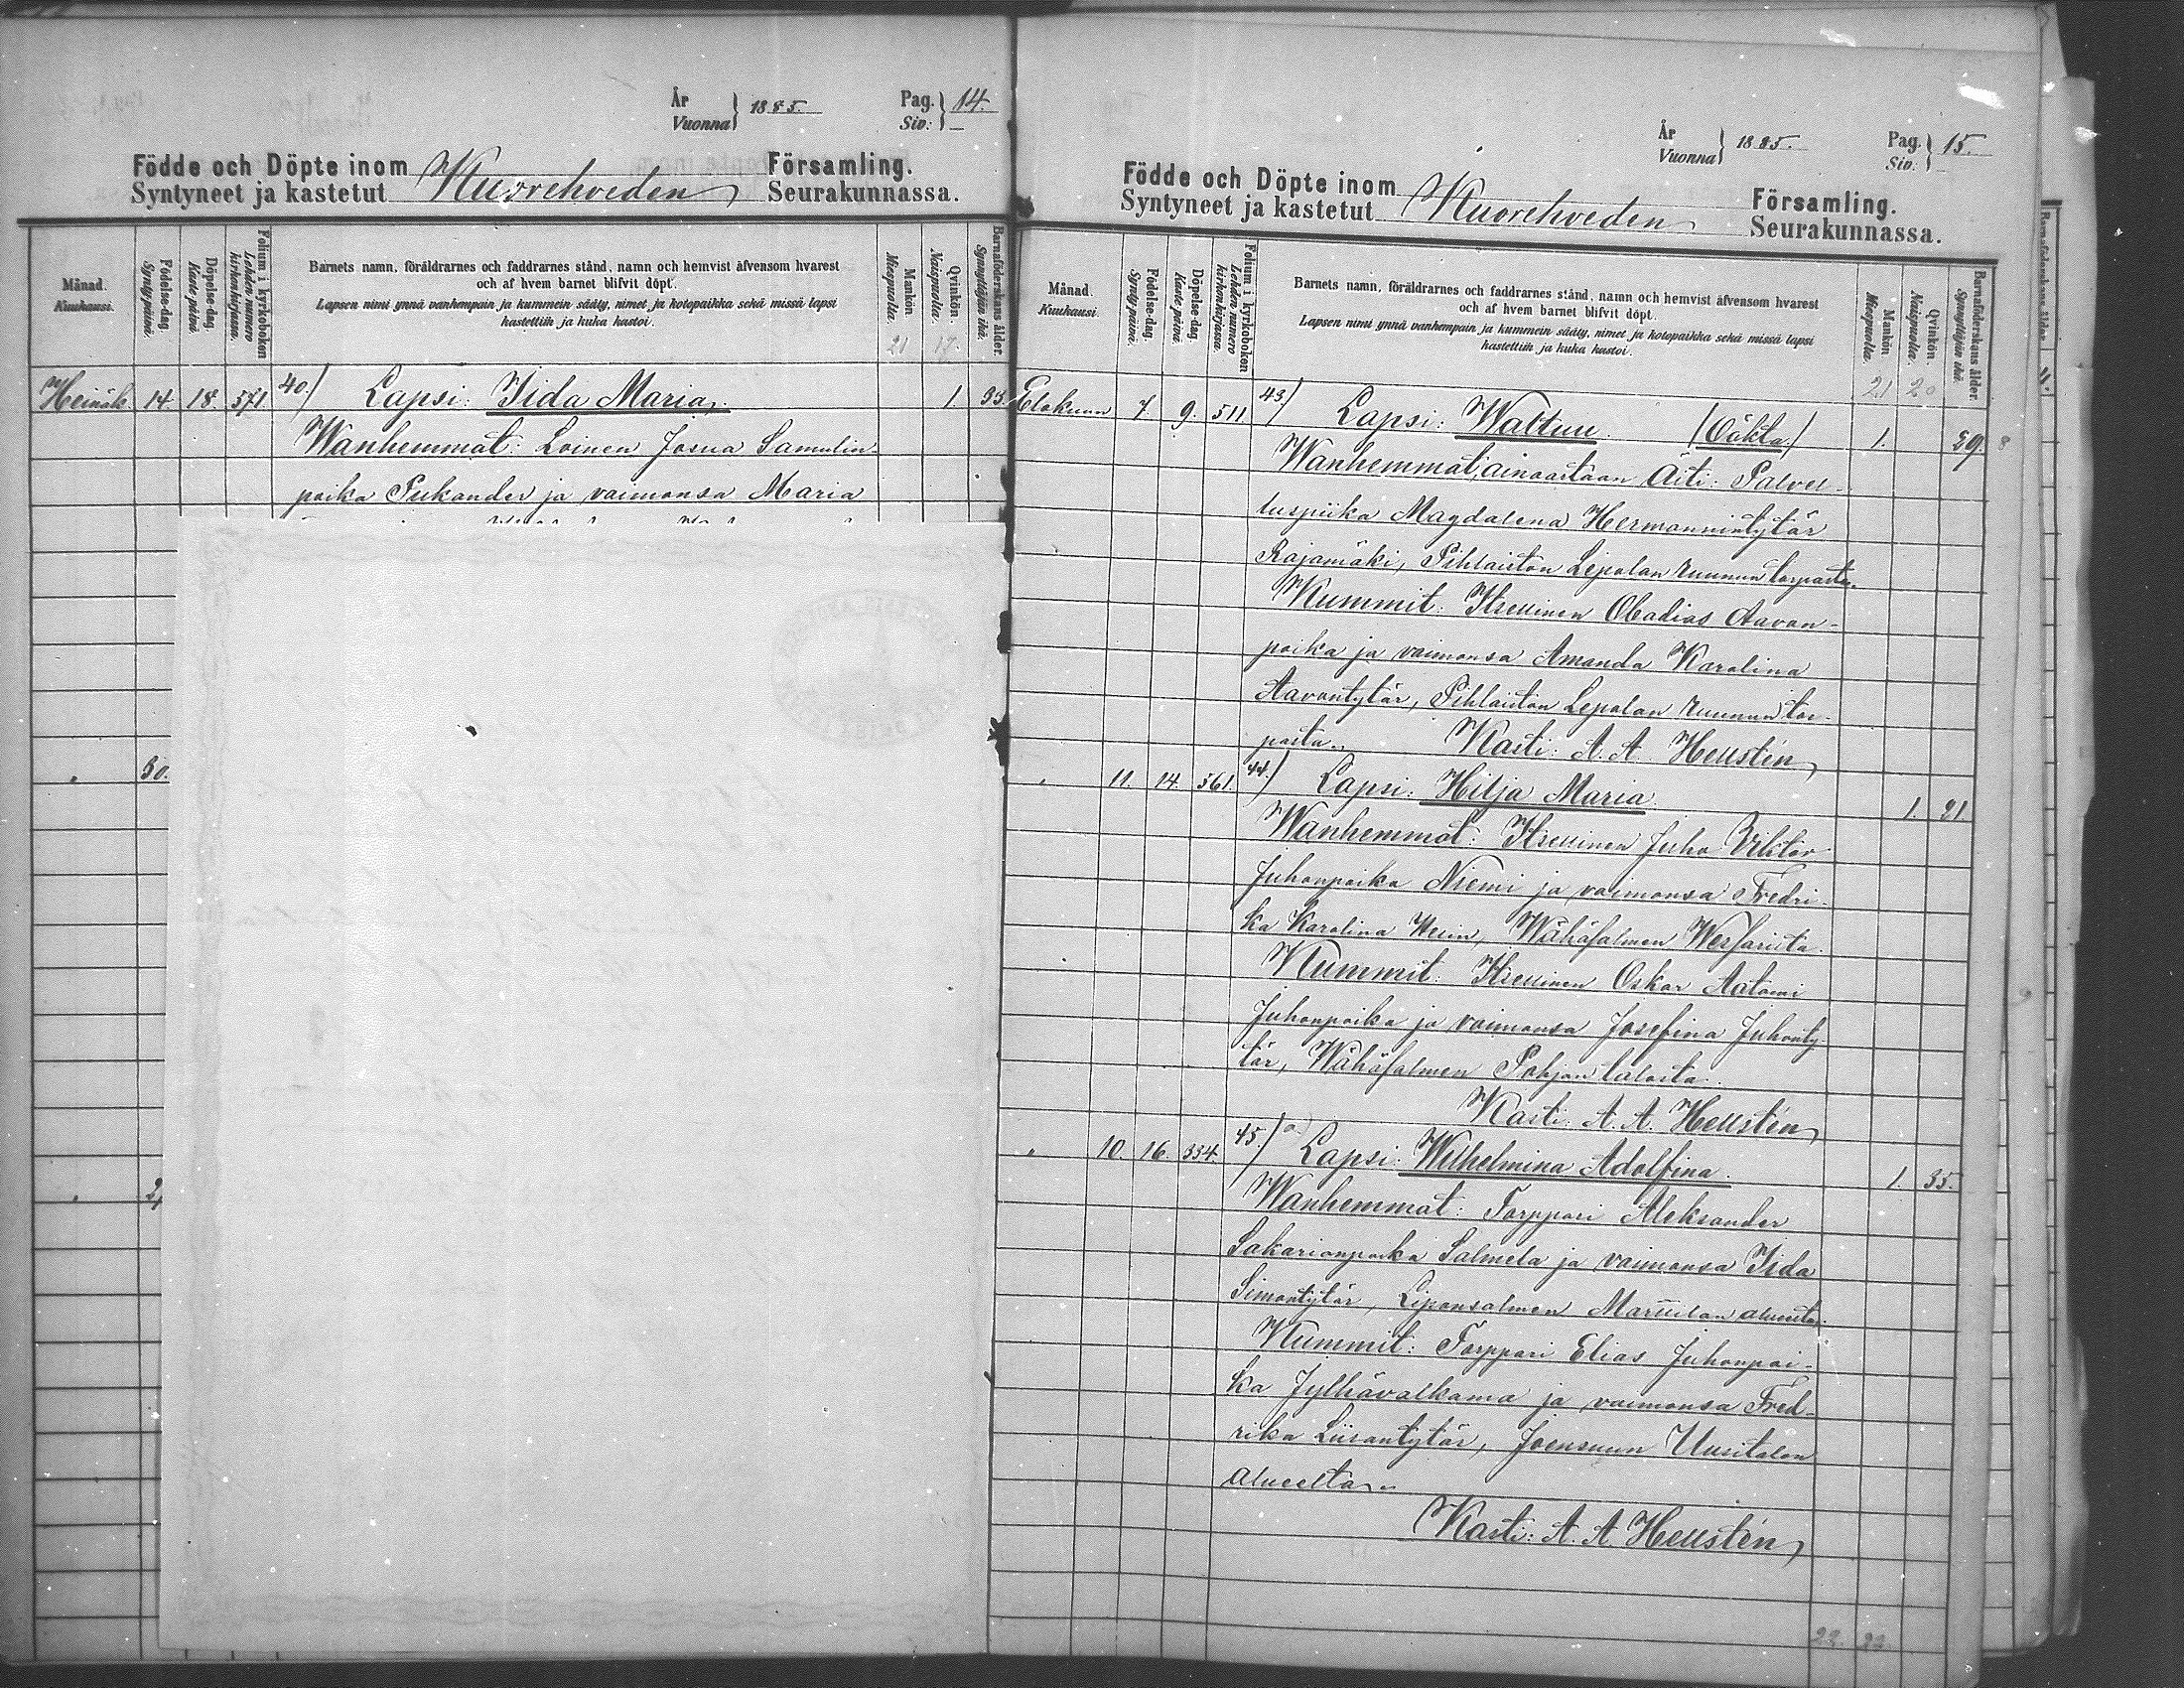 År Vuonna } 1885.
Pag. Siv: } 14.
Födde och Döpte inom Kuoreheveden Församling.
Syntyneet ja kastetut Seurakunnassa.
Månad. Kuukausi.
Födelse-dag. Syntypäivä.
Döpelse-dag. Kaste päivä.
Folium i kyrkoboken Lehden numero kirkonkirjassa.
Barnets namn, föräldrarnes och faddrarnes stånd, namn och hemvist äfvensom hvarest
och af hvem barnet blifvit döpt.
Lapsen nimi ynnä vanhempain ja kummein sääty, nimet ja kotopaikka sekä missä lapsi
kastettiin ja kuka kastoi.
Mankön Miespuolia. 21
Qvinkön. Naispuolia. 17.
Barnaföderskans ålder. Synnyttäjän ikä.
Heinäk. 14. 18. 571. 40.) Lapsi: Iida Maria. 1. 35.
Wanhemmat: Loinen Josua Samulin-
poika Pukander ja vaimonsa Maria
" 30.
"
År Vuonna } 1885.
Pag. Siv. } 15.
Födde och Döpte inom Kuoreheveden Församling.
Syntyneet ja kastetut Seurakunnassa.
Månad. Kuukausi.
Födelse-dag. Syntypäivä.
Döpelse dag. Kaste päivä.
Folium i kyrkoboken Lehden numero kirkonkirjassa.
Barnets namn, föräldrarnes och faddrarnes stånd, namn och hemvist äfvensom hvarest
och af hvem barnet blifvit döpt.
Lapsen nimi ynnä vanhempain ja kummein sääty, nimet ja kotopaikka sekä missä lapsi
kastettiin ja kuka kastoi.
Mankön Miespuolia. 21
Qvinkön. Naispuolia. 20
Barnaföderskans ålder. Synnyttäjän ikä.
Elokuun 7. 9. 511. 43.) Lapsi: Walttu. (Oäkta.) 1. 29.
Wanhemmat, ainoastaan Äiti: Palvel-
luspiika Magdalena Hermannintytär
Rajamäki, Pihlaiston Lepolan ruunun torpasta.
Kummit: Itsellinen Obadias Aavan-
poika ja vaimonsa Amanda Karolina
Aavantytär, Pihlaiston Lepolan ruunun tor-
pasta. Kasti: A. A. Hellstén
" 11. 14. 561. 44.) Lapsi: Hilja Maria. 1. 21.
Wanhemmat: Itsellinen Juho Viktor
Juhonpoika Niemi ja vaimonsa Fredri-
ka Karolina Wähäsalmen
Kummit: Itsellinen Oskar Aatami
Juhonpoika ja vaimonsa Josefina Juhonty-
tär, Wähäsalmen Pohjan talosta.
Kasti: A. A. Hellstén
" 10. 16. 334. 45.) Lapsi: Wilhelmina Adolfina. 1. 35.
Wanhemmat: Torppari Aleksander
Sakarianpoika Salmela ja vaimonsa Iida
Simontytär, Liponsalmen Marttilan alueelta.
Kummit: Torppari Elias Juhonpoi-
ka Jylhävalkama ja vaimonsa Fred-
rika Liisantytär, Joensuun Uusitalon
alueelta.
Kasti: A. A. Hellstén
22. 22.